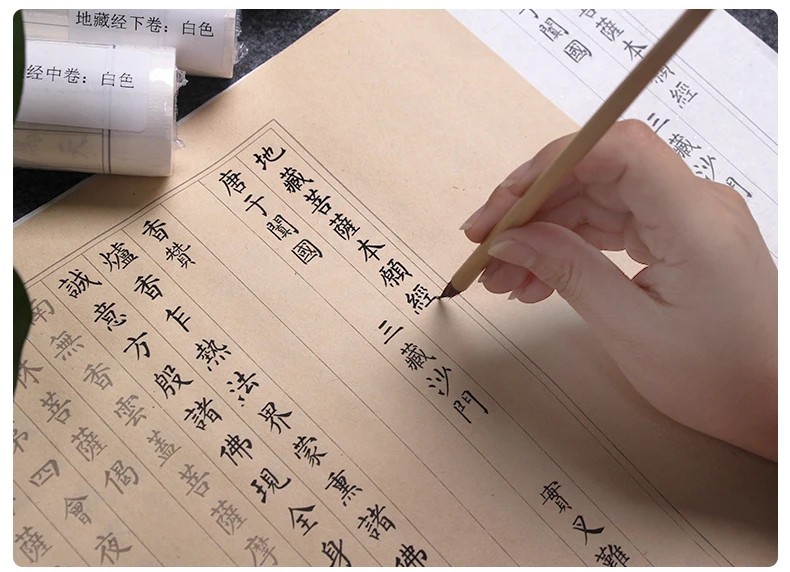 地藏经下卷：白色
经中卷：白色
地藏菩薩本願經
唐于闐國 三藏沙門 實叉難
香贊
爐香乍熱法界蒙熏諸佛
誠意方殷諸佛現全身
南無香雲蓋菩薩摩
菩薩偈
第四會夜
薩
菩薩本願經
于闐國 三藏沙門